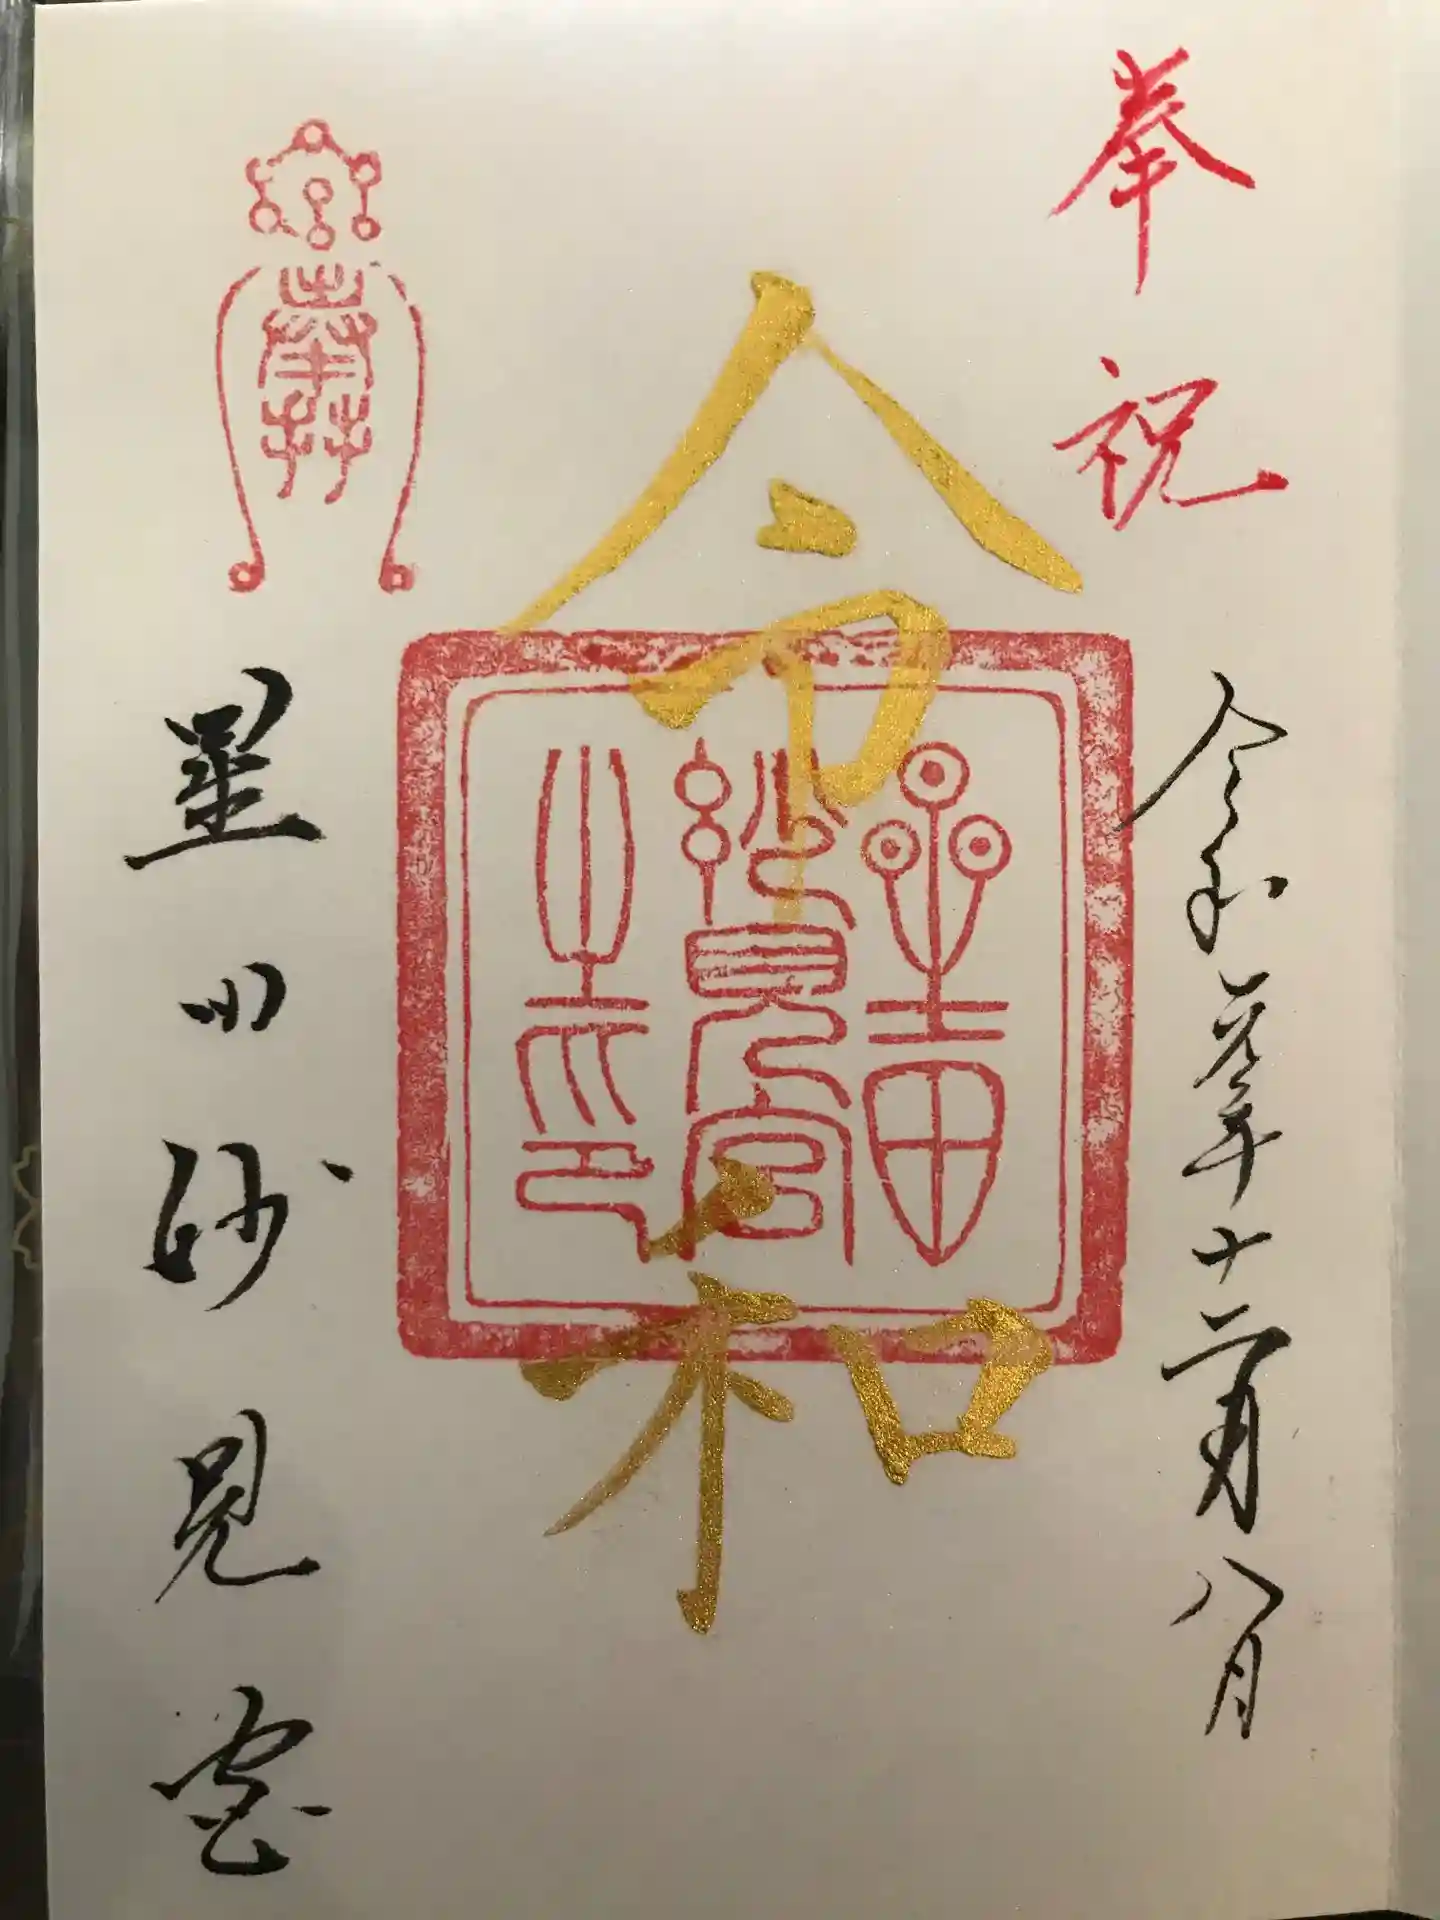 奉祝
令和元年十二月八日
令和
星田
妙見宮
之印
奉拝
星田妙見宮